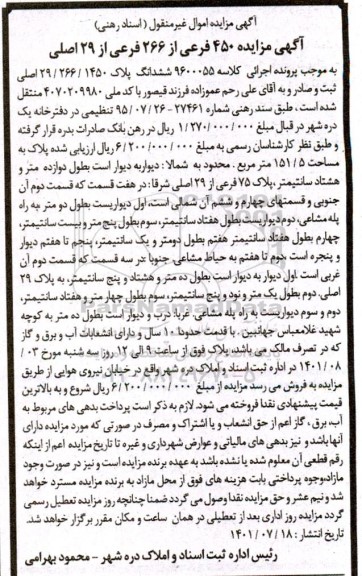 آگهی مزایده اموال غیرمنقول ( اسناد رهنی )
آگهی مزایده ۴۵۰ فرعی از ۲۶۶ فرعی از ۲۹ اصلی
به موجب پرونده اجرائی کلاسه ۹۶۰۰۰۵۵ ششدانگ پلاک ۱۴۵۰ /۲۶۶/ ۲۹ اصلی
ثبت و صادر و به آقای علی رحم عموزاده فرزند قیصور با کد ملی ۴۰۷۰۲۰۹۹۸۰ منتقل
شده است ، طبق سند رهنی شماره ۲۷۴۶۱- ۹۵/۰۷/۲۶ تنظیمی در دفترخانه یک
دره شهر در قبال مبلغ ۱/۲۷۰/۰۰۰/۰۰۰ ریال در رهن بانک صادرات بدره قرار گرفته
و طبق نظر کارشناسان رسمی به مبلغ ۶/۲۰۰/۰۰۰/۰۰۰ ریال ارزیابی شده پلاک به
مساحت ۱۵۱/۵ متر مربع . محدود به شمالا : دیواربه دیوار است بطول دوازده متر و
هشتاد سانتیمتر ،پلاک ۷۵ فرعی از ۲۹ اصلی شرقا : در هفت قسمت که قسمت دوم آن
جنوبی و قسمتهای چهارم و ششم آن شمالی است، اول دیواریست بطول دو متر ،به راه
پله مشاعی، دوم دیواریست بطول هفتاد سانتیمتر، سوم بطول پنج متر و بیست سانتیمتر،
چهارم بطول هفتاد سانتیمتر هفتم بطول دومتر و یک سانتیمتر، پنجم تا هفتم دیوار
و پنجره است ،دوم تا هفتم به حیاط مشاعی. جنوبا :در سه قسمت که قسمت دوم آن
غربی است .اول دیوار به دیوار است بطول ده متر و هشتاد و پنج سانتیمتر، به پلاک ۲۹
اصلی. دوم بطول یک متر و نود و پنج سانتیمتر، سوم بطول چهار متر و هفتاد سانتیمتر،
دوم و سوم دیواریست به راه پله مشاعی .غربا: درب و دیوار است بطول ده متر به کوچه
شهید غلامعباس جهانبین . با قدمت حدودا ۱۰ سال و دارای انشعابات آب و برق و گاز
که در تصرف مالک می باشد، پلاک فوق از ساعت ۹ الی ۱۲ روز سه شنبه مورخ ۰۳/
۱۴۰۱/۰۸ در اداره ثبت اسناد و املاک دره شهر واقع در خیابان نیروی هوایی از طریق
مزایده به فروش می رسد مزایده از مبلغ ۶/۲۰۰/۰۰۰/۰۰۰ ریال شروع و به بالاترین
قیمت پیشنهادی نقدا فروخته می شود. لازم به ذکر است پرداخت بدهی های مربوط به
آب، برق ، گاز اعم از حق انشعاب و یا اشتراک و مصرف در صورتی که مورد مزایده دارای
آنها باشد و نیز بدهی های مالیاتی و عوارض شهرداری و غیره تا تاریخ مزایده اعم از اینکه
رقم قطعی آن معلوم شده یا نشده باشد به عهده برنده مزایده است و نیز در صورت وجود
مازاد،وجوه پرداختی بابت هزینه های فوق از محل مازاد به برنده مزایده مسترد خواهد
شد و نیم عشر و حق مزایده نقدا وصول می گردد ضمنا چنانچه روز مزایده تعطیل رسمی
گردد مزایده روز اداری بعد از تعطیلی در همان ساعت و مکان مقرر برگزار خواهد شد.
تاریخ انتشار : ۱۴۰۱/۰۷/۱۸
رئیس اداره ثبت اسناد و املاک دره شهر - محمود بهرامی